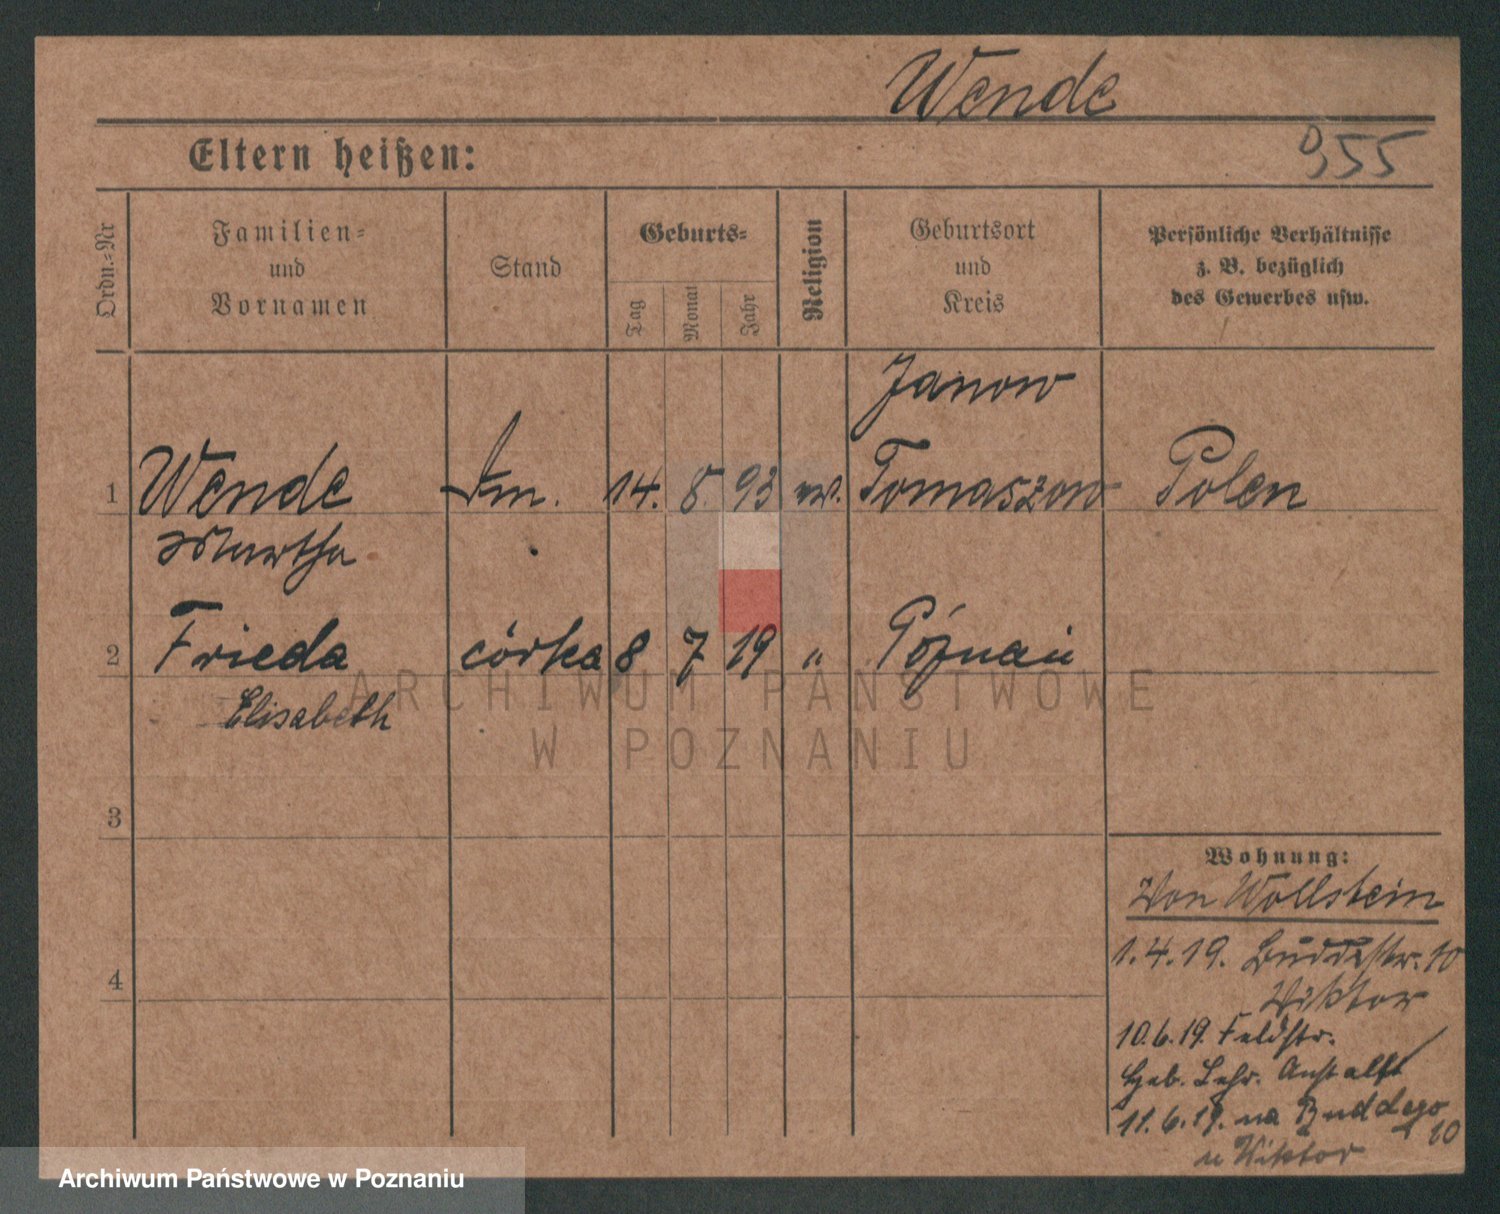 Wende
955
Eltern heißen:
Ordn.-Nr
Familien-
und
Vornamen
Stand
Geburts-
Tag
Monat
Jahr
Religion
Geburtsort
und
Kreis
Persönliche Verhältnisse
z. B. bezüglich
des Gewerbes usw.
Janow
1 Wende 14. 8. 93 ev. Tomaszow Polen
Martha
2 Frieda córka 8 7 19 " Poznań
Elisabeth
ARCHIWUM PAŃSTWOWE
W POZNANIU
3
4
Wohnung:
Von Wollstein
1.4.19. Buddestr. 10
Viktor
10.6.19. Feldstr.
Heb. Lehr. Anstalt
11.6.19. na Buddego 10
u Wiktor
Archiwum Państwowe w Poznaniu